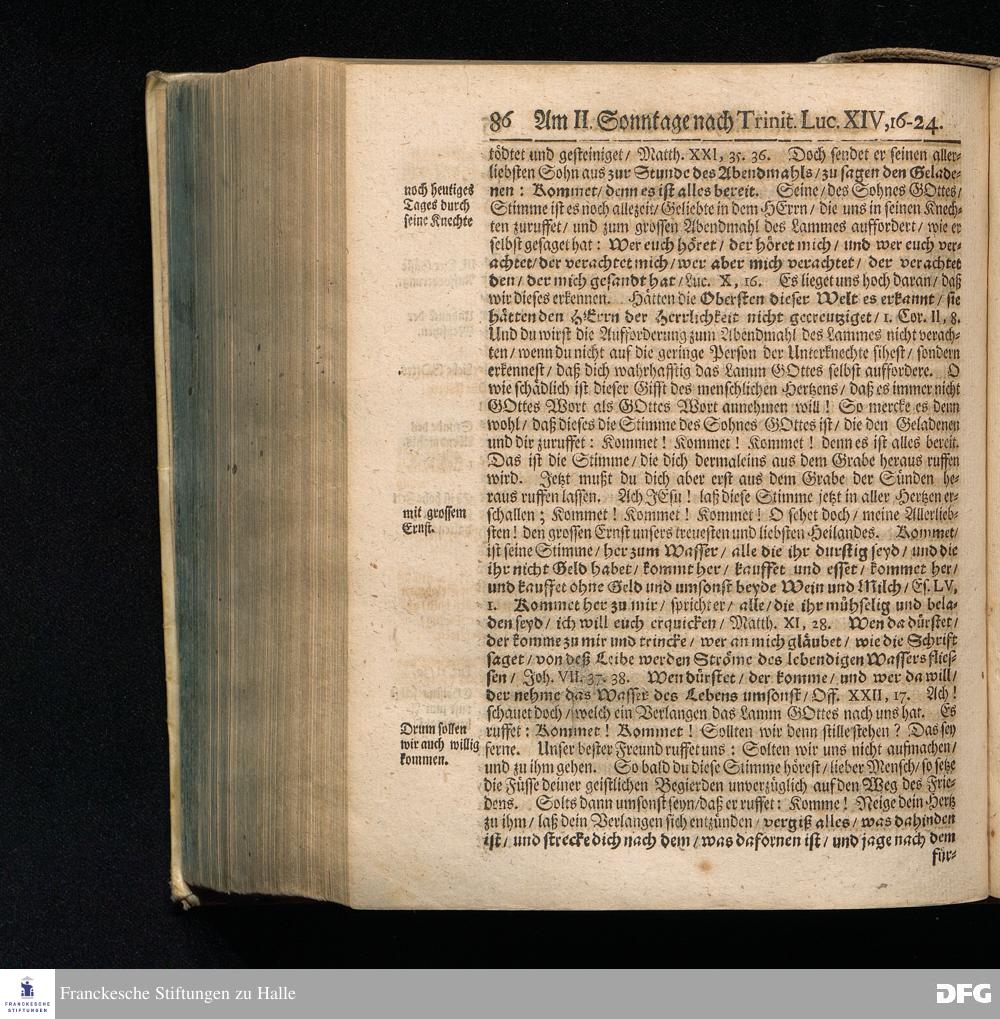 86 Am II. Sonntage nach Trinit. Luc. XIV, 16-24.
tödtet und gesteiniget/ Matth. XXI, 35. 36. Doch sendet er seinen aller-
liebsten Sohn aus zur Stunde des Abendmahls/ zu sagen den Gelade-
nen: Kommet/ denn es ist alles bereit. Seine/ des Sohnes GOttes/
noch heutiges
Tages durch
seine Knechte
Stimme ist es noch allezeit/ Geliebte in dem HErrn/ die uns in seinen Knech-
ten zuruffet/ und zum grossen Abendmahl des Lammes auffordert/ wie er
selbst gesaget hat: Wer euch höret/ der höret mich/ und wer euch ver-
achtet/ der verachtet mich/ wer aber mich verachtet/ der verachtet
den/ der mich gesandt hat/ Luc. X, 16. Es lieget uns hoch daran/ daß
wir dieses erkennen. Hätten die Obersten dieser Welt es erkannt/ sie
hätten den HErrn der Herrlichkeit nicht gecreuziget/ 1. Cor. II, 8.
Und du wirst die Aufforderung zum Abendmahl des Lammes nicht verach-
ten/ wenn du nicht auf die geringe Person der Unterknechte sihest/ sondern
erkennest/ daß dich wahrhafftig das Lamm GOttes selbst auffordere. O
wie schädlich ist dieser Gifft des menschlichen Hertzens/ daß es immer nicht
GOttes Wort als GOttes Wort annehmen will! So mercke es denn
wohl/ daß dieses die Stimme des Sohnes GOttes ist/ die den Geladenen
und dir zuruffet: Kommet! Kommet! Kommet! denn es ist alles bereit.
Das ist die Stimme/ die dich dermaleins aus dem Grabe heraus ruffen
wird. Jetzt mußt du dich aber erst aus dem Grabe der Sünden he-
raus ruffen lassen. Ach JEsu! laß diese Stimme jetzt in aller Hertzen er-
mit grossem
Ernst.
schallen; Kommet! Kommet! Kommet! O sehet doch/ meine Allerlieb-
sten! den grossen Ernst unsers treuesten und liebsten Heilandes. Kommet/
ist seine Stimme/ her zum Wasser/ alle die ihr durstig seyd/ und die
ihr nicht Geld habet/ kommt her/ kauffet und esset/ kommet her/
und kauffet ohne Geld und umsonst beyde Wein und Milch/ Es. LV,
1. Kommet her zu mir/ spricht er/ alle/ die ihr mühselig und bela-
den seyd/ ich will euch erquicken/ Matth. XI, 28. Wen da dürstet/
der komme zu mir und trincke/ wer an mich gläubet/ wie die Schrift
saget/ von deß Leibe werden Ströme des lebendigen Wassers flies-
sen/ Joh. VII. 37. 38. Wen dürstet/ der komme/ und wer da will/
der nehme das Wasser des Lebens umsonst/ Off. XXII, 17. Ach!
schauet doch/ welch ein Verlangen das Lamm GOttes nach uns hat. Es
Drum sollen
wir auch willig
kommen.
ruffet: Kommet! Kommet! Sollten wir denn stille stehen? Das sey
ferne. Unser bester Freund ruffet uns: Solten wir uns nicht aufmachen/
und zu ihm gehen. So bald du diese Stimme hörest/ lieber Mensch/ so setze
die Füsse deiner geistlichen Begierden unverzüglich auf den Weg des Frie-
dens. Solts dann umsonst seyn/ daß er ruffet: Komme! Neige dein Hertz
zu ihm/ laß dein Verlangen sich entzünden/ vergiß alles/ was dahinden
ist/ und strecke dich nach dem/ was dafornen ist/ und jage nach dem
für-
FRANCKESCHE
STIFTUNGEN
Franckesche Stiftungen zu Halle
DFG